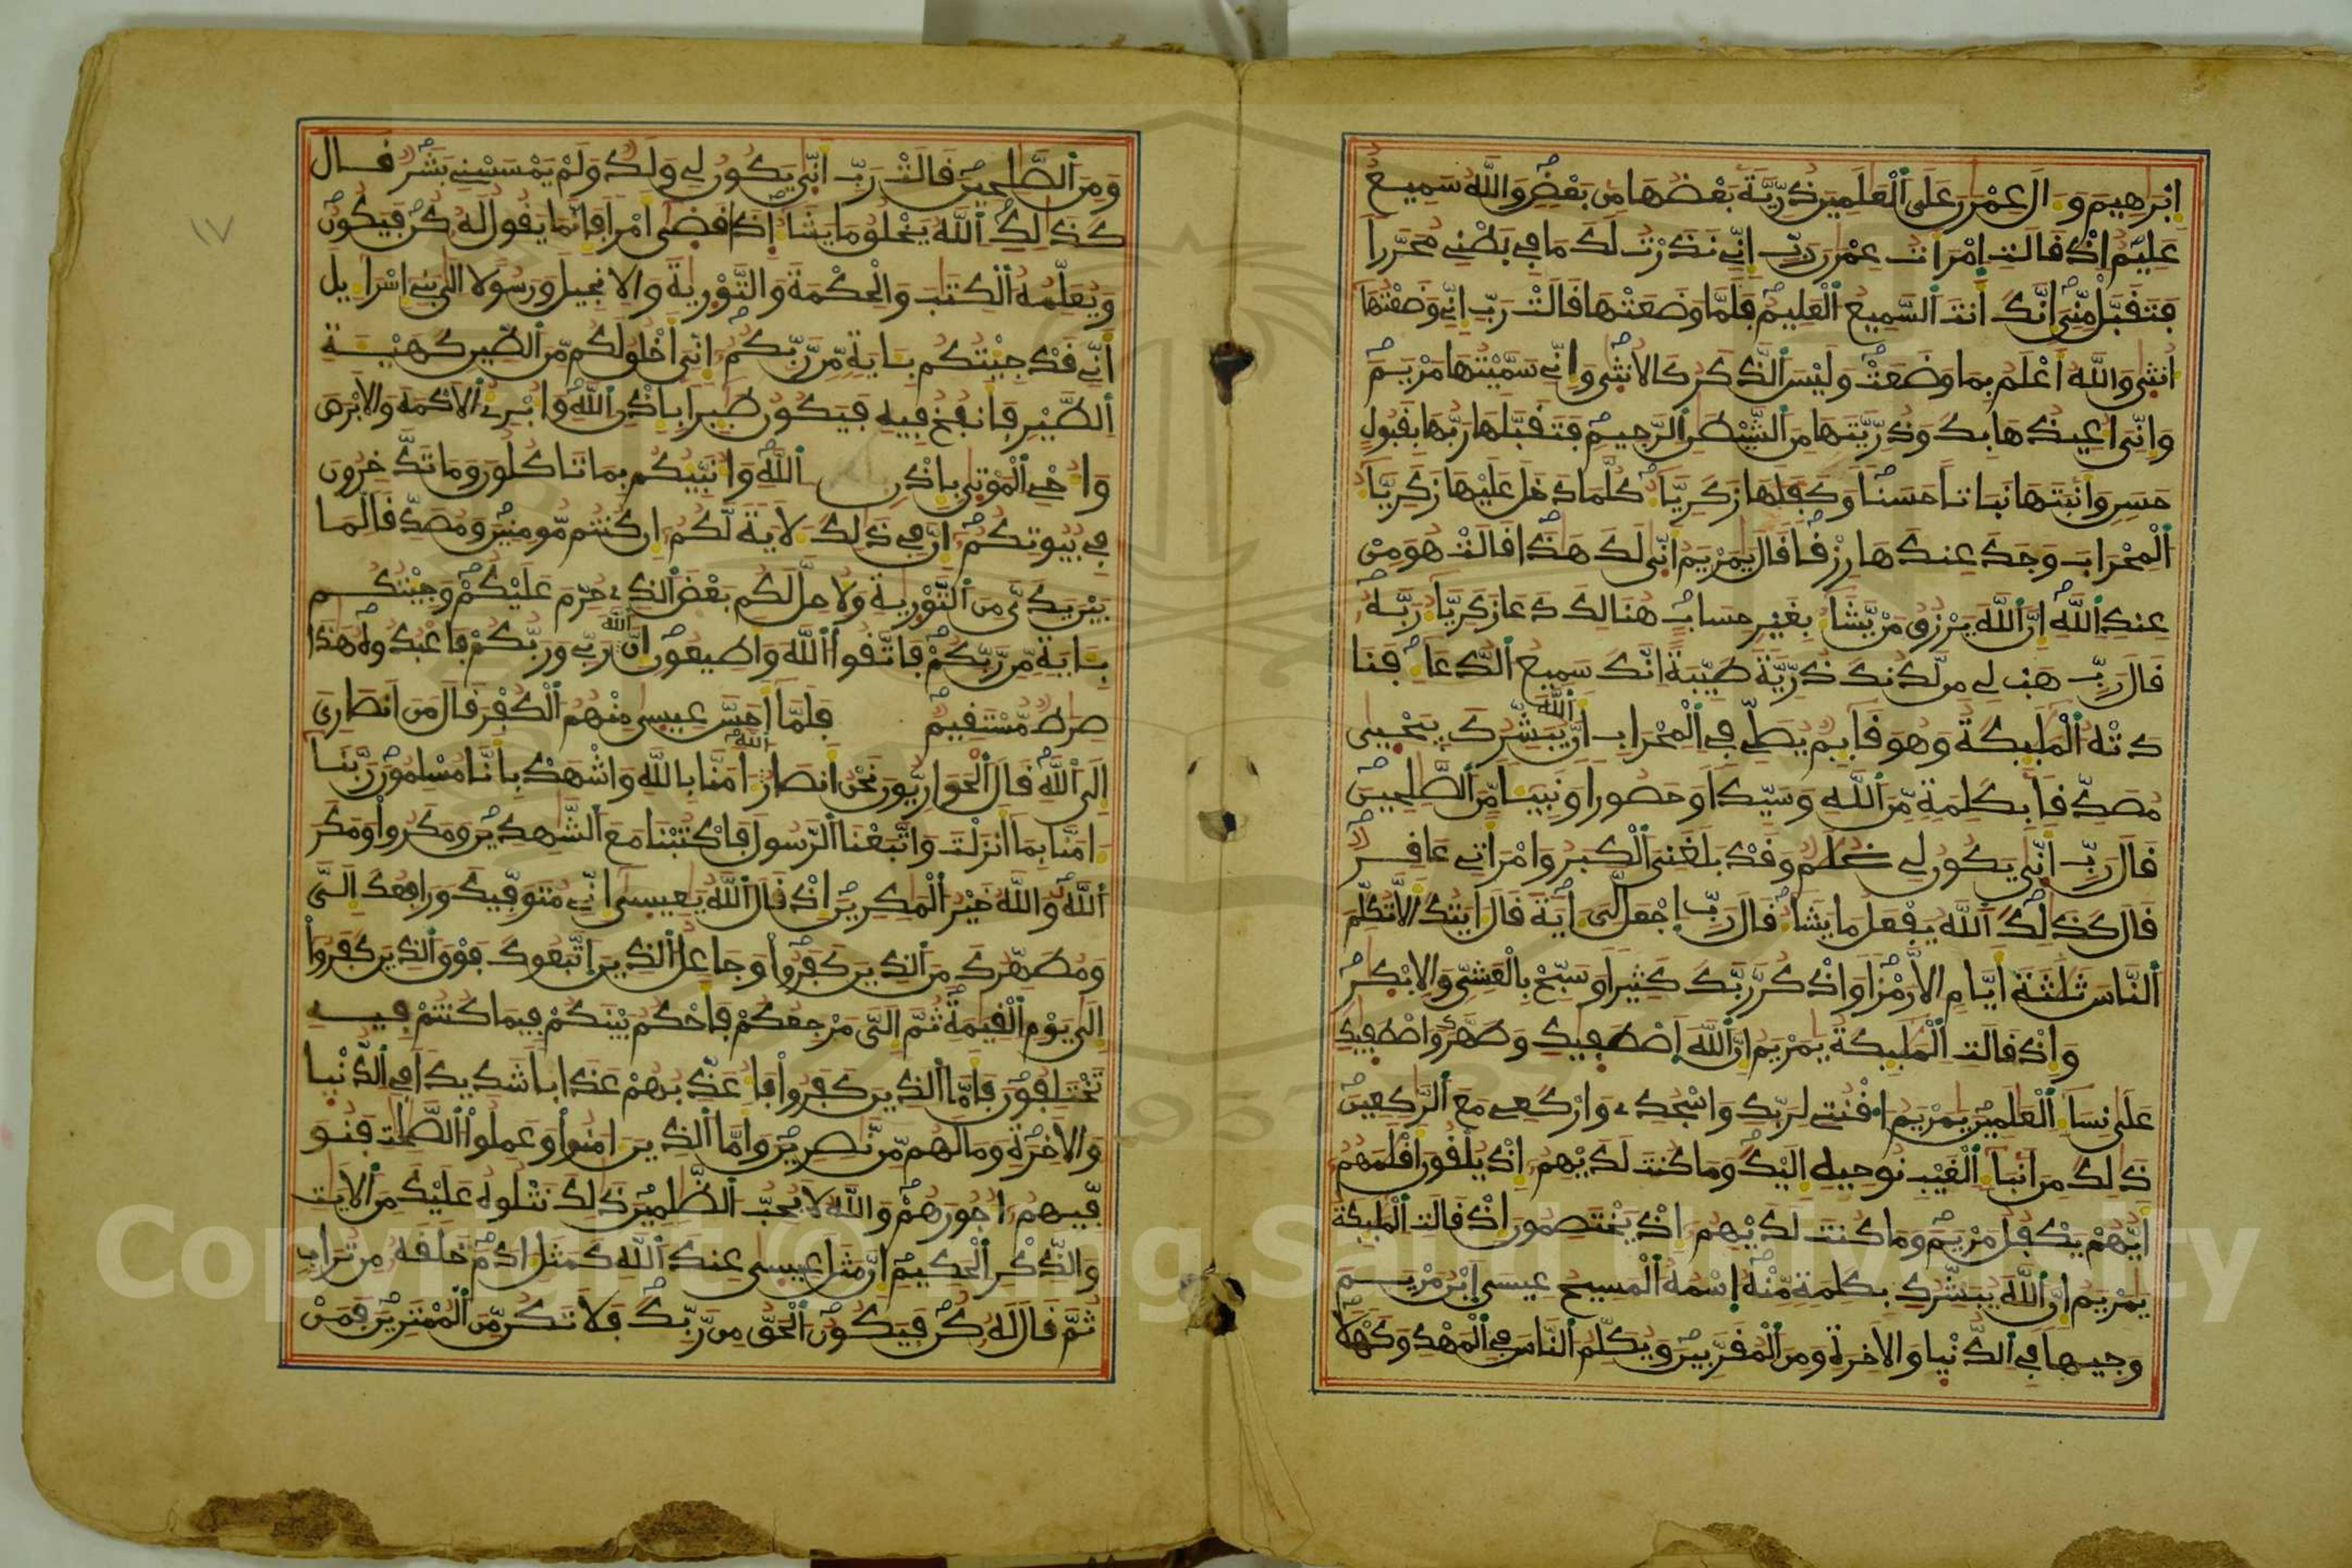 اِبْرَٰهِيمَ وَءَالَ عِمْرَٰنَ عَلَى اَ۬لْعَٰلَمِينَ ذُرِّيَّةَۢ بَعْضُهَا مِنۢ بَعْضٖ وَاللَّهُ سَمِيعٌ
عَلِيمٌ اِذْ قَالَتِ اِمْرَأَتُ عِمْرَٰنَ رَبِّ إِنِّے نَذَرْتُ لَكَ مَا فِے بَطْنِے مُحَرَّراٗ
فَتَقَبَّلْ مِنِّيَ إِنَّكَ أَنتَ اَ۬لسَّمِيعُ اُ۬لْعَلِيمُ فَلَمَّا وَضَعَتْهَا قَالَتْ رَبِّ إِنِّے وَضَعْتُهَا
أُنث۪ىٰ وَاللَّهُ أَعْلَمُ بِمَا وَضَعَتْ وَلَيْسَ اَ۬لذَّكَرُ كَالُانث۪ىٰ وَإِنِّے سَمَّيْتُهَا مَرْيَمَ
وَإِنِّيَ أُعِيذُهَا بِكَ وَذُرِّيَّتَهَا مِنَ اَ۬لشَّيْطَٰنِ اِ۬لرَّجِيمِ فَتَقَبَّلَهَا رَبُّهَا بِقَبُولٍ
حَسَنٖ وَأَنۢبَتَهَا نَبَاتاً حَسَناٗ وَكَفَلَهَا زَكَرِيَّآءُ كُلَّمَا دَخَلَ عَلَيْهَا زَكَرِيَّآءُ
اُ۬لْمِحْرَابَ وَجَدَ عِندَهَا رِزْقاٗ قَالَ يَٰمَرْيَمُ أَنّ۪ىٰ لَكِ هَٰذَا قَالَتْ هُوَ مِنْ
عِندِ اِ۬للَّهِ إِنَّ اَ۬للَّهَ يَرْزُقُ مَنْ يَّشَآءُ بِغَيْرِ حِسَابٍ هُنَالِكَ دَعَا زَكَرِيَّآءُ رَبَّهُۥ
قَالَ رَبِّ هَبْ لِے مِن لَّدُنكَ ذُرِّيَّةٗ طَيِّبَةً اِنَّكَ سَمِيعُ اُ۬لدُّعَآءِ فَنَا
دَتْهُ اُ۬لْمَلَٰٓئِكَةُ وَهُوَ قَآئِمٞ يُصَلِّے فِے اِ۬لْمِحْرَابِ أَنَّ اَ۬للَّهَ يُبَشِّرُكَ بِيَحْي۪ىٰ
مُصَدِّقاَۢ بِكَلِمَةٖ مِّنَ اَ۬للَّهِ وَسَيِّداٗ وَحَصُوراٗ وَنَبِيٓـٔاٗ مِّنَ اَ۬لصَّٰلِحِينَ
قَالَ رَبِّ أَنّ۪ىٰ يَكُونُ لِے غُلَٰمٞ وَقَدْ بَلَغَنِيَ اَ۬لْكِبَرُ وَامْرَأَتِے عَاقِرٞ
قَالَ كَذَٰلِكَ اَ۬للَّهُ يَفْعَلُ مَا يَشَآءُ قَالَ رَبِّ اِ۪جْعَل لِّيَ ءَايَةٗ قَالَ ءَايَتُكَ أَلَّا تُكَلِّمَ
اَ۬لنَّاسَ ثَلَٰثَةَ أَيَّامٍ اِلَّا رَمْزاٗ وَاذْكُر رَّبَّكَ كَثِيراٗ وَسَبِّحْ بِالْعَشِيِّ وَالِابْكَٰرِ
وَإِذْ قَالَتِ اِ۬لْمَلَٰٓئِكَةُ يَٰمَرْيَمُ إِنَّ اَ۬للَّهَ اَ۪صْطَف۪يٰكِ وَطَهَّرَكِ وَاصْطَف۪يٰكِ
عَلَىٰ نِسَآءِ اِ۬لْعَٰلَمِينَ يَٰمَرْيَمُ اُ۟قْنُتِے لِرَبِّكِ وَاسْجُدِے وَارْكَعِے مَعَ اَ۬لرَّٰكِعِينَ
ذَٰلِكَ مِنَ اَنۢبَآءِ اِ۬لْغَيْبِ نُوحِيهِ إِلَيْكَ وَمَا كُنتَ لَدَيْهِمُۥٓ إِذْ يُلْقُونَ أَقْلَٰمَهُمُۥٓ
أَيُّهُمْ يَكْفُلُ مَرْيَمَ وَمَا كُنتَ لَدَيْهِمُۥٓ إِذْ يَخْتَصِمُونَ إِذْ قَالَتِ اِ۬لْمَلَٰٓئِكَةُ
يَٰمَرْيَمُ إِنَّ اَ۬للَّهَ يُبَشِّرُكِ بِكَلِمَةٖ مِّنْهُ اُ۪سْمُهُ اُ۬لْمَسِيحُ عِيسَى اَ۪بْنُ مَرْيَمَ
وَجِيهاٗ فِے اِ۬لدُّنْي۪ا وَالَاخِرَةِ وَمِنَ اَ۬لْمُقَرَّبِينَ وَيُكَلِّمُ اُ۬لنَّاسَ فِے اِ۬لْمَهْدِ وَكَهْلاٗ
١٧
وَمِنَ اَ۬لصَّٰلِحِينَ قَالَتْ رَبِّ أَنّ۪ىٰ يَكُونُ لِے وَلَدٞ وَلَمْ يَمْسَسْنِے بَشَرٞ قَالَ
كَذَٰلِكِ اِ۬للَّهُ يَخْلُقُ مَا يَشَآءُ اِذَا قَض۪ىٰٓ أَمْراٗ فَإِنَّمَا يَقُولُ لَهُۥ كُن فَيَكُونُ
وَيُعَلِّمُهُ اُ۬لْكِتَٰبَ وَالْحِكْمَةَ وَالتَّوْر۪يٰةَ وَالِانجِيلَ وَرَسُولاً اِلَىٰ بَنِےٓ إِسْرَآءِيلَ
أَنِّے قَدْ جِئْتُكُم بِـَٔايَةٖ مِّن رَّبِّكُمُۥٓ إِنِّيَ أَخْلُقُ لَكُم مِّنَ اَ۬لطِّينِ كَهَيْـَٔةِ
اِ۬لطَّيْرِ فَأَنفُخُ فِيهِ فَيَكُونُ طَٰٓئِراَۢ بِإِذْنِ اِ۬للَّهِ وَأُبْرِۓُ اُ۬لَاكْمَهَ وَالَابْرَصَ
وَأُحْيِ اِ۬لْمَوْت۪ىٰ بِإِذْنِ اِ۬للَّهِ وَأُنَبِّئُكُم بِمَا تَاكُلُونَ وَمَا تَدَّخِرُونَ
فِے بُيُوتِكُمُۥٓ إِنَّ فِے ذَٰلِكَ لَأٓيَةٗ لَّكُمُۥٓ إِن كُنتُم مُّومِنِينَ وَمُصَدِّقاٗ لِّمَا
بَيْنَ يَدَيَّ مِنَ اَ۬لتَّوْر۪يٰةِ وَلِأُحِلَّ لَكُم بَعْضَ اَ۬لذِے حُرِّمَ عَلَيْكُمْ وَجِئْتُكُم
بِـَٔايَةٖ مِّن رَّبِّكُمْ فَاتَّقُواْ اُ۬للَّهَ وَأَطِيعُونِ إِنَّ اَ۬للَّهَ رَبِّے وَرَبُّكُمْ فَاعْبُدُوهُ هَٰذَا
صِرَٰطٞ مُّسْتَقِيمٞ فَلَمَّآ أَحَسَّ عِيس۪ىٰ مِنْهُمُ اُ۬لْكُفْرَ قَالَ مَنَ اَنصَارِيَ
إِلَى اَ۬للَّهِ قَالَ اَ۬لْحَوَارِيُّونَ نَحْنُ أَنصَارُ اُ۬للَّهِ ءَامَنَّا بِاللَّهِ وَاشْهَدْ بِأَنَّا مُسْلِمُونَ رَبَّنَآ
ءَامَنَّا بِمَآ أَنزَلْتَ وَاتَّبَعْنَا اَ۬لرَّسُولَ فَاكْتُبْنَا مَعَ اَ۬لشَّٰهِدِينَ وَمَكَرُواْ وَمَكَرَ
اَ۬للَّهُ وَاللَّهُ خَيْرُ اُ۬لْمَٰكِرِينَ إِذْ قَالَ اَ۬للَّهُ يَٰعِيس۪ىٰٓ إِنِّے مُتَوَفِّيكَ وَرَافِعُكَ إِلَيَّ
وَمُطَهِّرُكَ مِنَ اَ۬لذِينَ كَفَرُواْ وَجَاعِلُ اُ۬لذِينَ اَ۪تَّبَعُوكَ فَوْقَ اَ۬لذِينَ كَفَرُوٓاْ
إِلَىٰ يَوْمِ اِ۬لْقِيَٰمَةِ ثُمَّ إِلَيَّ مَرْجِعُكُمْ فَأَحْكُمُ بَيْنَكُمْ فِيمَا كُنتُمْ فِيهِ
تَخْتَلِفُونَ فَأَمَّا اَ۬لذِينَ كَفَرُواْ فَأُعَذِّبُهُمْ عَذَاباٗ شَدِيداٗ فِے اِ۬لدُّنْي۪ا
وَالَاخِرَةِ وَمَا لَهُم مِّن نَّٰصِرِينَ وَأَمَّا اَ۬لذِينَ ءَامَنُواْ وَعَمِلُواْ اُ۬لصَّٰلِحَٰتِ فَنُوَ
فِّيهِمُۥٓ أُجُورَهُمْ وَاللَّهُ لَا يُحِبُّ اُ۬لظَّٰلِمِينَ ذَٰلِكَ نَتْلُوهُ عَلَيْكَ مِنَ اَ۬لَايَٰتِ
وَالذِّكْرِ اِ۬لْحَكِيمِ إِنَّ مَثَلَ عِيس۪ىٰ عِندَ اَ۬للَّهِ كَمَثَلِ ءَادَمَ خَلَقَهُۥ مِن تُرَابٖ
ثُمَّ قَالَ لَهُۥ كُن فَيَكُونُ اُ۬لْحَقُّ مِن رَّبِّكَ فَلَا تَكُن مِّنَ اَ۬لْمُمْتَرِينَ فَمَنْ
Copyright © King Saud University
1957